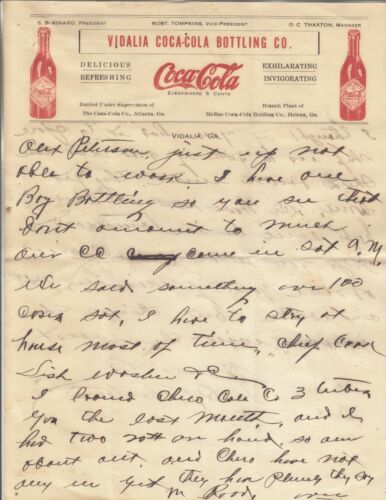 S. B. KINARD, PRESIDENT
ROBT. TOMPKINS, VICE-PRESIDENT
O. C. THAXTON, MANAGER
VIDALIA COCA-COLA BOTTLING CO.
DELICIOUS
REFRESHING
Coca-Cola
EVERYWHERE 5 CENTS
EXHILARATING
INVIGORATING
Bottled Under Supervision of
The Coca-Cola Co., Atlanta, Ga.
Branch Plant of
McRae Coca-Cola Bottling Co., Helena, Ga.
VIDALIA, GA.
Peterson, just up not
able to work I have one
Boy Bottling so you see that
dont amount to much
our CC came in sat A.M.
We sold something over 100
cases sat, I have to stay at
house most of time, chief Cook
Dish washer &C
I loaned Chero Cola Co 3 tubes
Gas the last Month, and I
had two left on hand, so am
about out and Chero have not
any in yet they have plenty they say